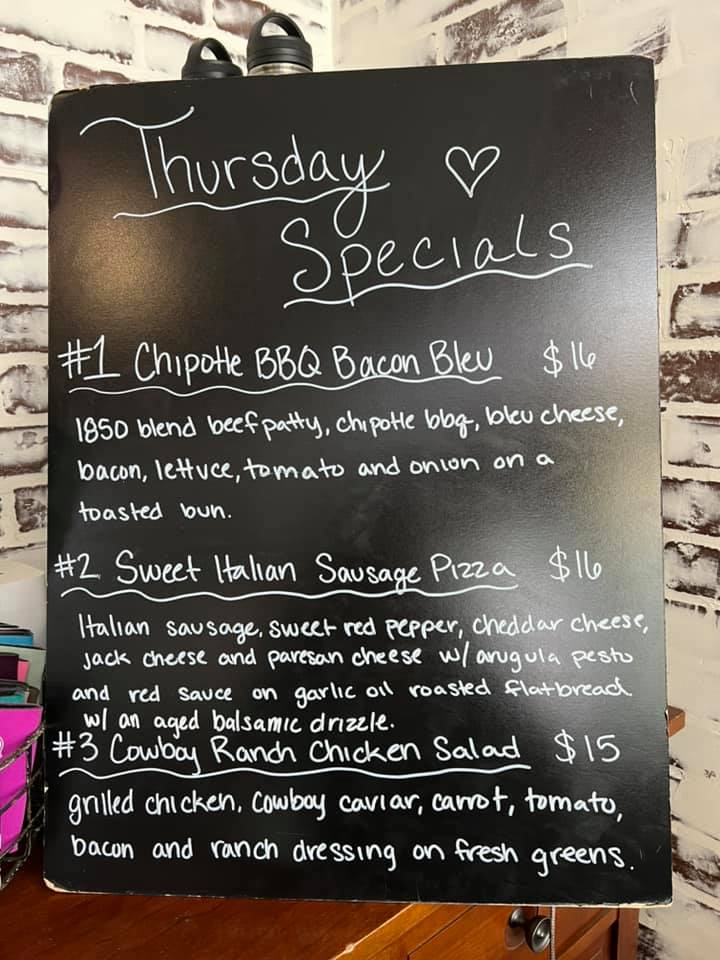 Thursday
Specials
#1 Chipotle BBQ Bacon Bleu $16
1850 blend beef patty, chipotle bbq, bleu cheese,
bacon, lettuce, tomato and onion on a
toasted bun.
#2 Sweet Italian Sausage Pizza $16
Italian sausage, sweet red pepper, cheddar cheese,
jack cheese and paresan cheese w/ arugula pesto
and red sauce on garlic oil roasted flatbread
w/ an aged balsamic drizzle.
#3 Cowboy Ranch Chicken Salad $15
grilled chicken, cowboy caviar, carrot, tomato,
bacon and ranch dressing on fresh greens.